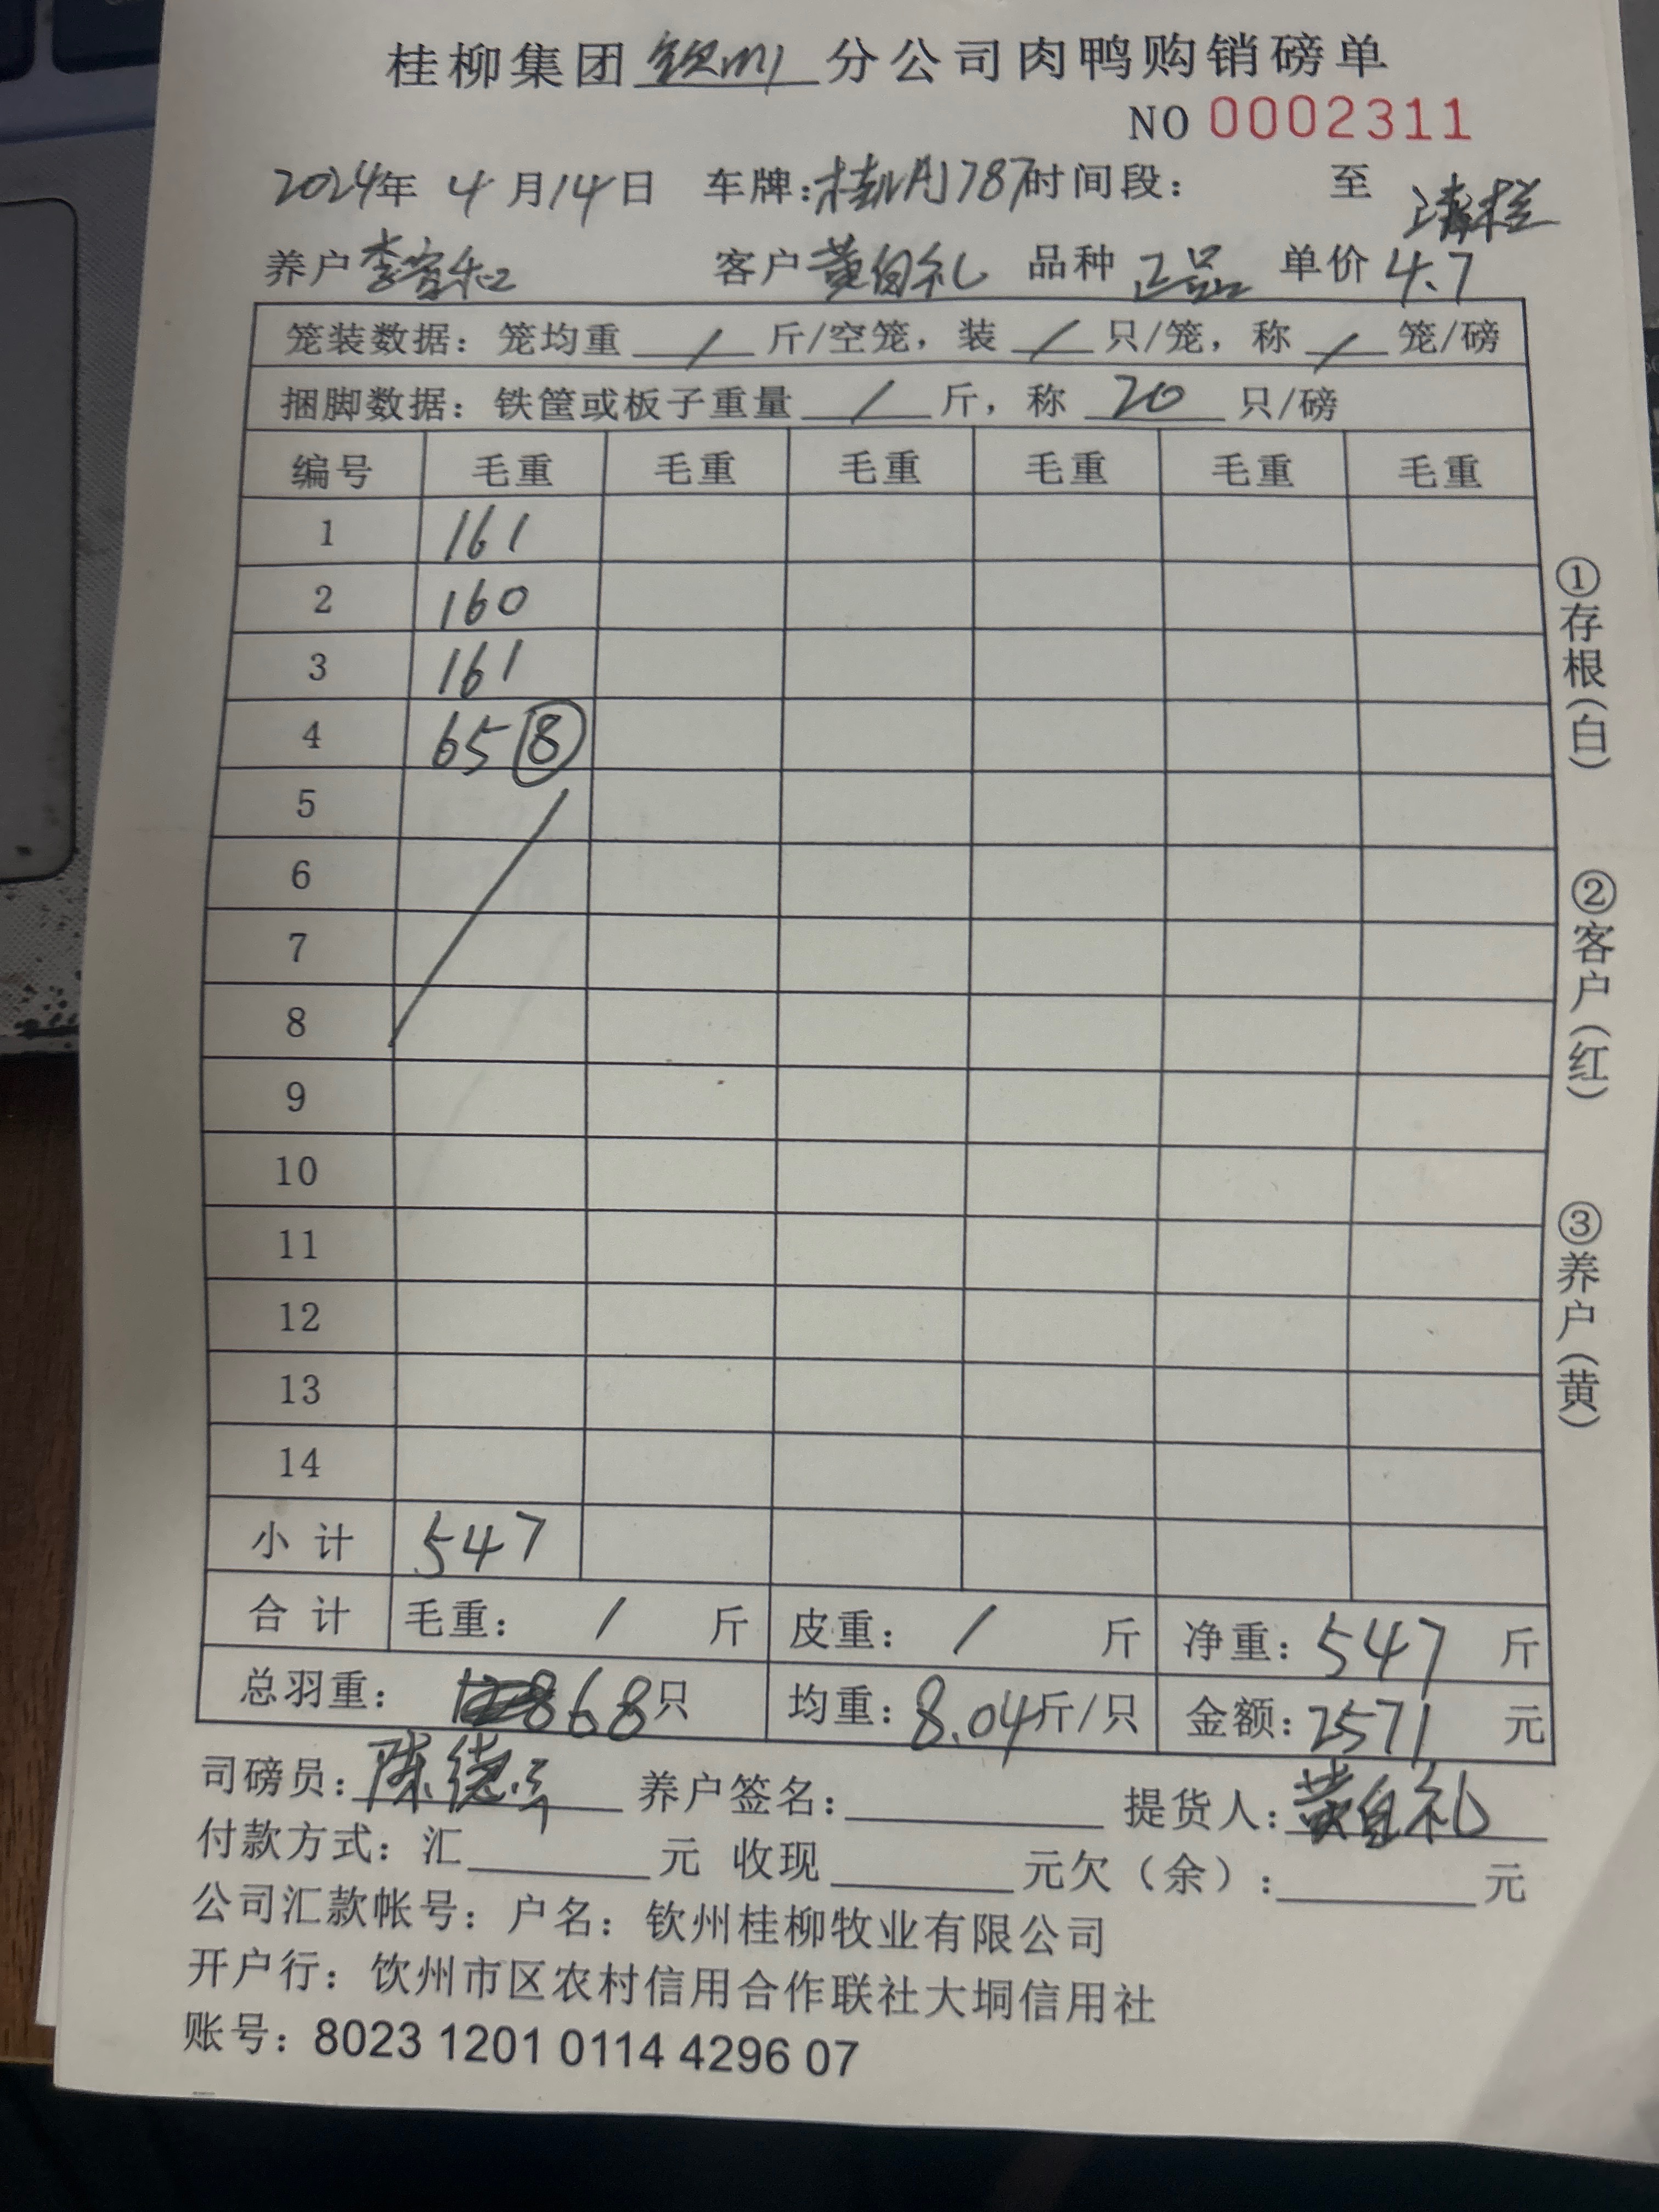 桂柳集团钦州分公司肉鸭购销磅单
NO 0002311
2024年 4月14日 车牌: 787 时间段: 至 清栏
养户 李 客户 黄自礼 品种 正品 单价 4.7
笼装数据: 笼均重 / 斤/空笼, 装 / 只/笼, 称 / 笼/磅
捆脚数据: 铁筐或板子重量 / 斤, 称 20 只/磅
编号 毛重 毛重 毛重 毛重 毛重 毛重
1 161
2 160
3 161
4 65 ⑧
5
6
7
8
9
10
11
12
13
14
小计 547
合计 毛重: / 斤 皮重: / 斤 净重: 547 斤
总羽重: 68只 均重: 8.04斤/只 金额: 2571 元
司磅员: 陈德 养户签名: 提货人: 黄自礼
付款方式: 汇 元 收现 元欠(余): 元
公司汇款帐号: 户名: 钦州桂柳牧业有限公司
开户行: 钦州市区农村信用合作联社大垌信用社
账号: 8023 1201 0114 4296 07
①存根(白)
②客户(红)
③养户(黄)